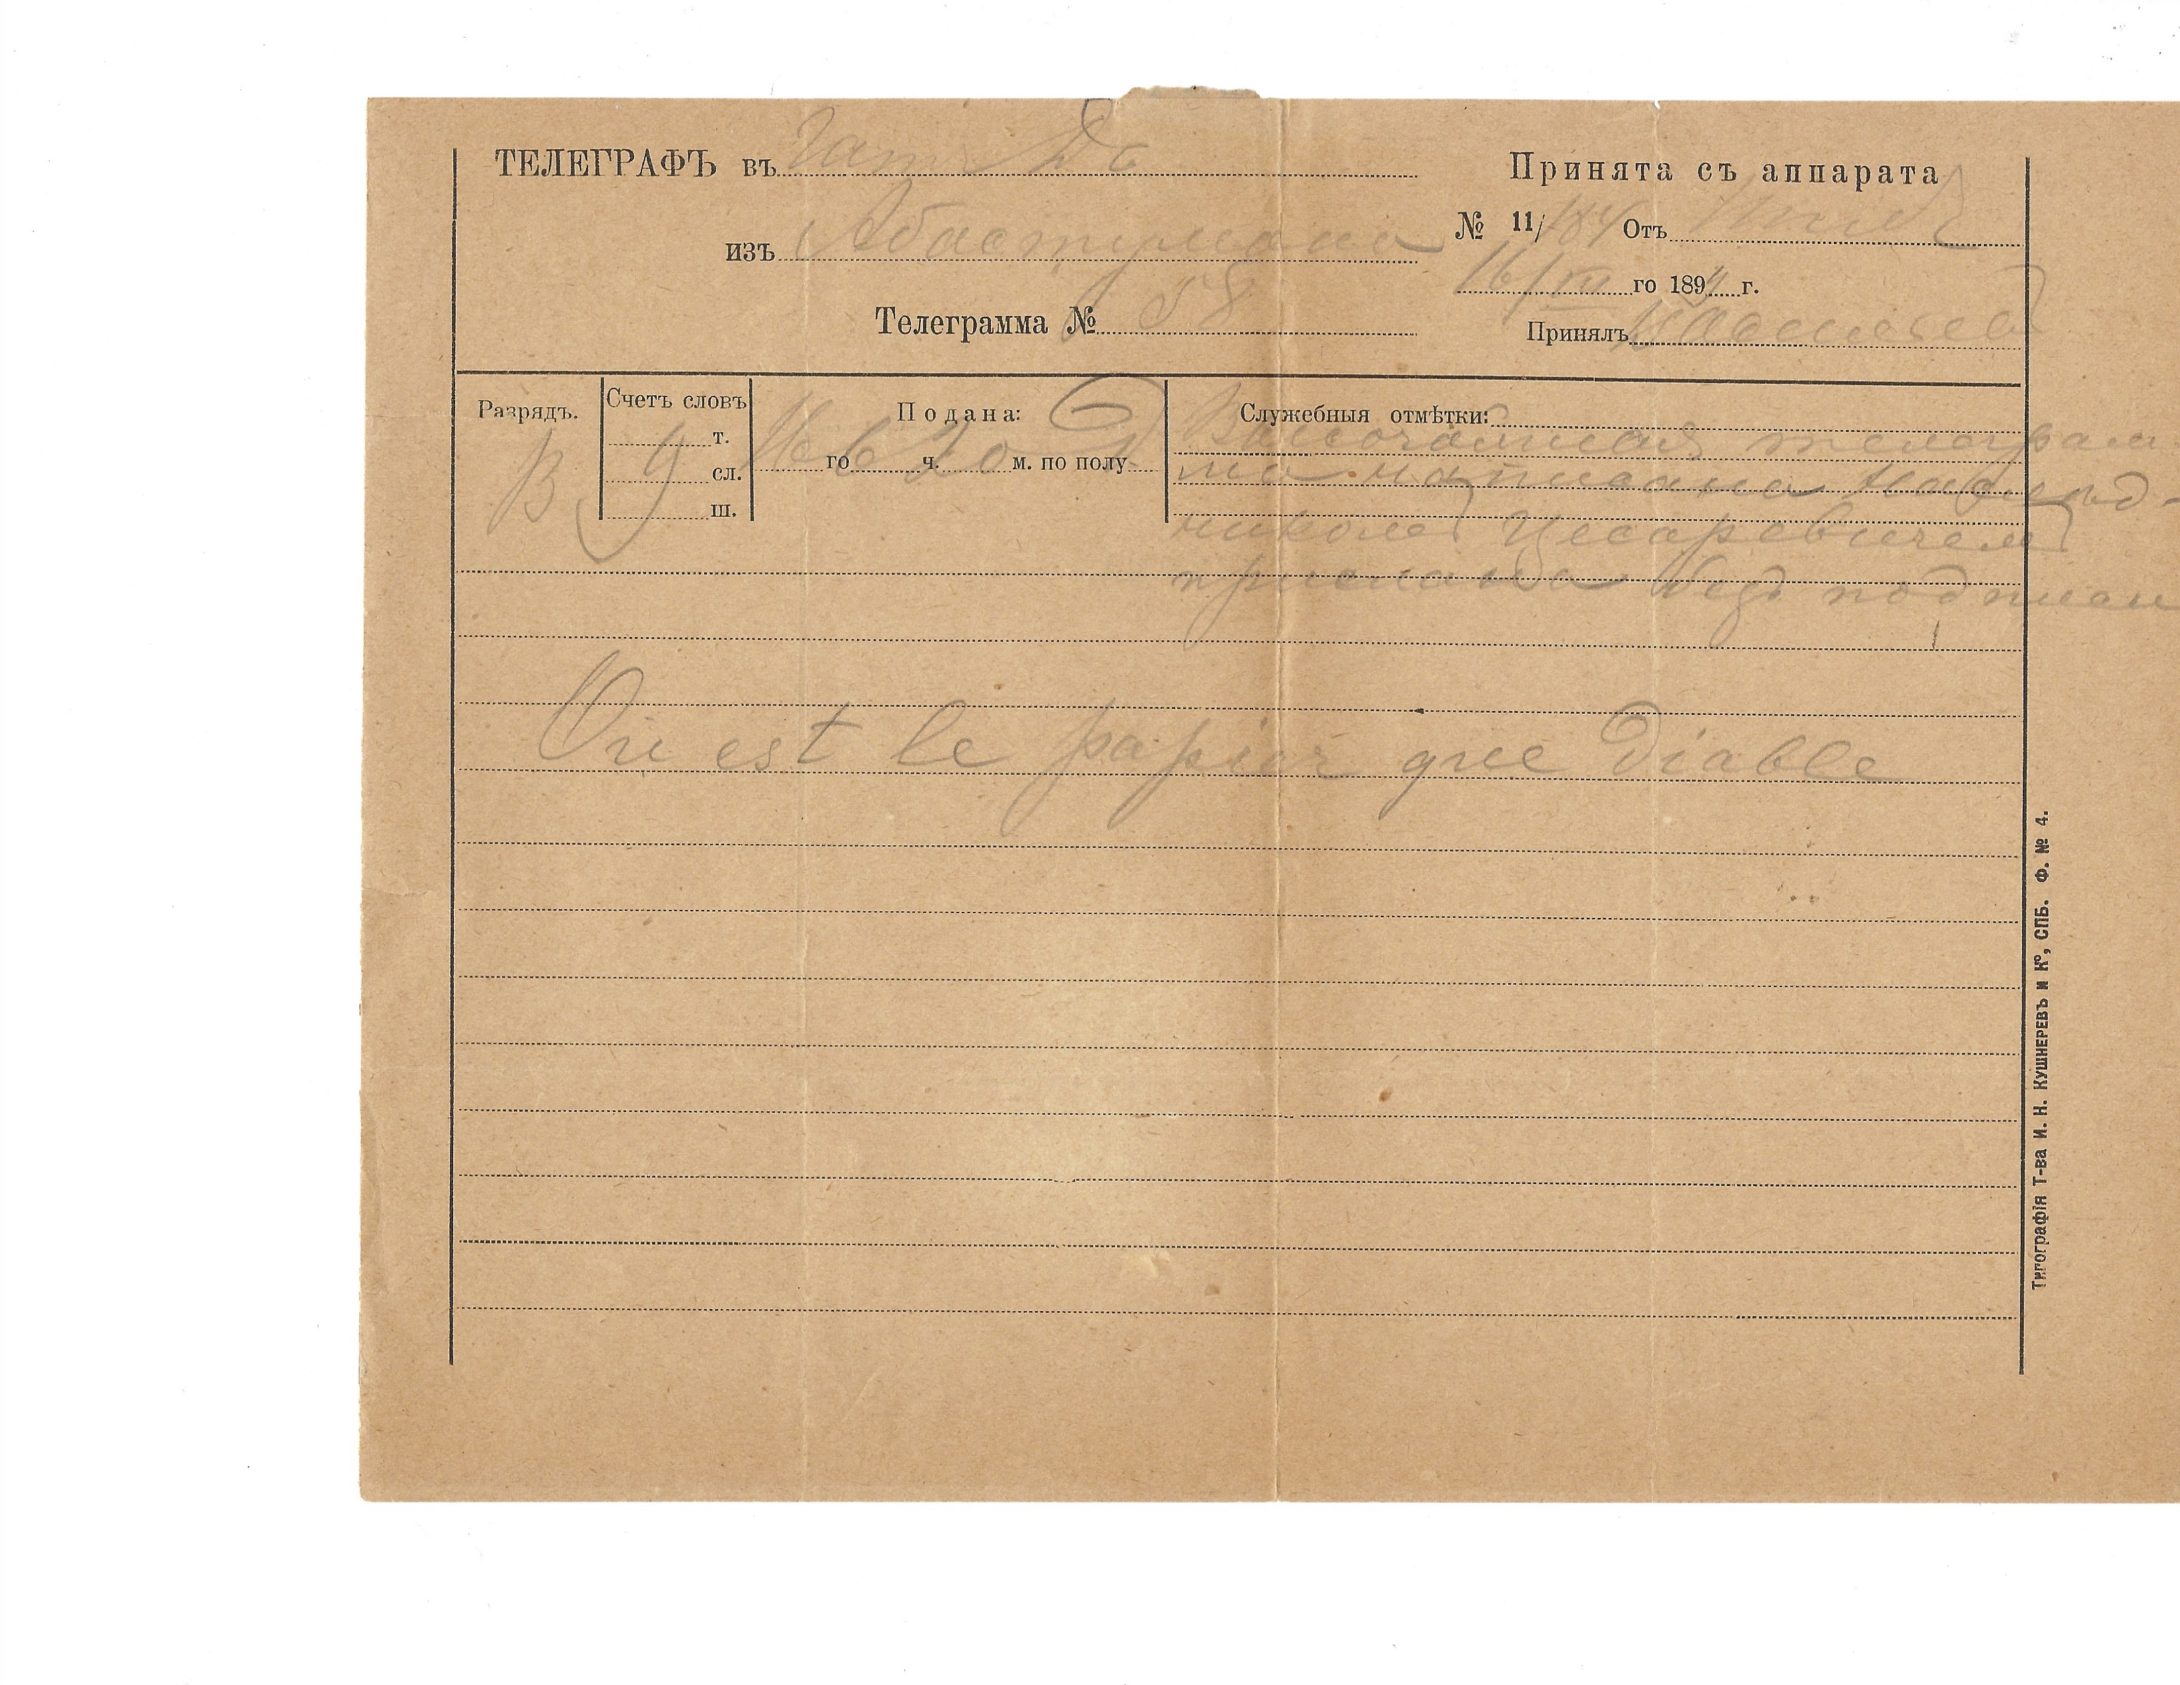 ТЕЛЕГРАФЪ въ Гат Дв
Принята съ аппарата
изъ Абастумана
№ 11/ 184 Отъ
16/III го 1894 г.
Телеграмма № 58
Принялъ
Разрядъ. Счетъ словъ Подана: Служебныя отмѣтки:
В 9 т. сл. ш. 16 го 6 ч. 20 м. по полу
Высочайшая телеграм
ма написана Наслѣд-
никомъ Цесаревичемъ
прислана безъ подписи
Ou est le papier que Diable
Типографія Т-ва И. Н. Кушнеревъ и Кº, СПБ. Ф. № 4.